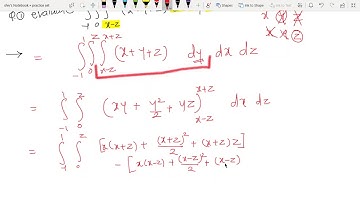 shiv's Notebook • practice set
Q① evaluate ∫∫∫ x-z
→ = ∫₋₁¹ ∫₀ᶻ ∫ₓ₋zˣ⁺ᶻ (x+y+z) dy dx dz
= ∫₋₁¹ ∫₀ᶻ (xy + y²/2 + yz)ₓ₋zˣ⁺ᶻ dx dz
= ∫₋₁¹ ∫₀ᶻ [x(x+z) + (x+z)²/2 + (x+z)z]
- [x(x-z) + (x-z)²/2 + (x-z)